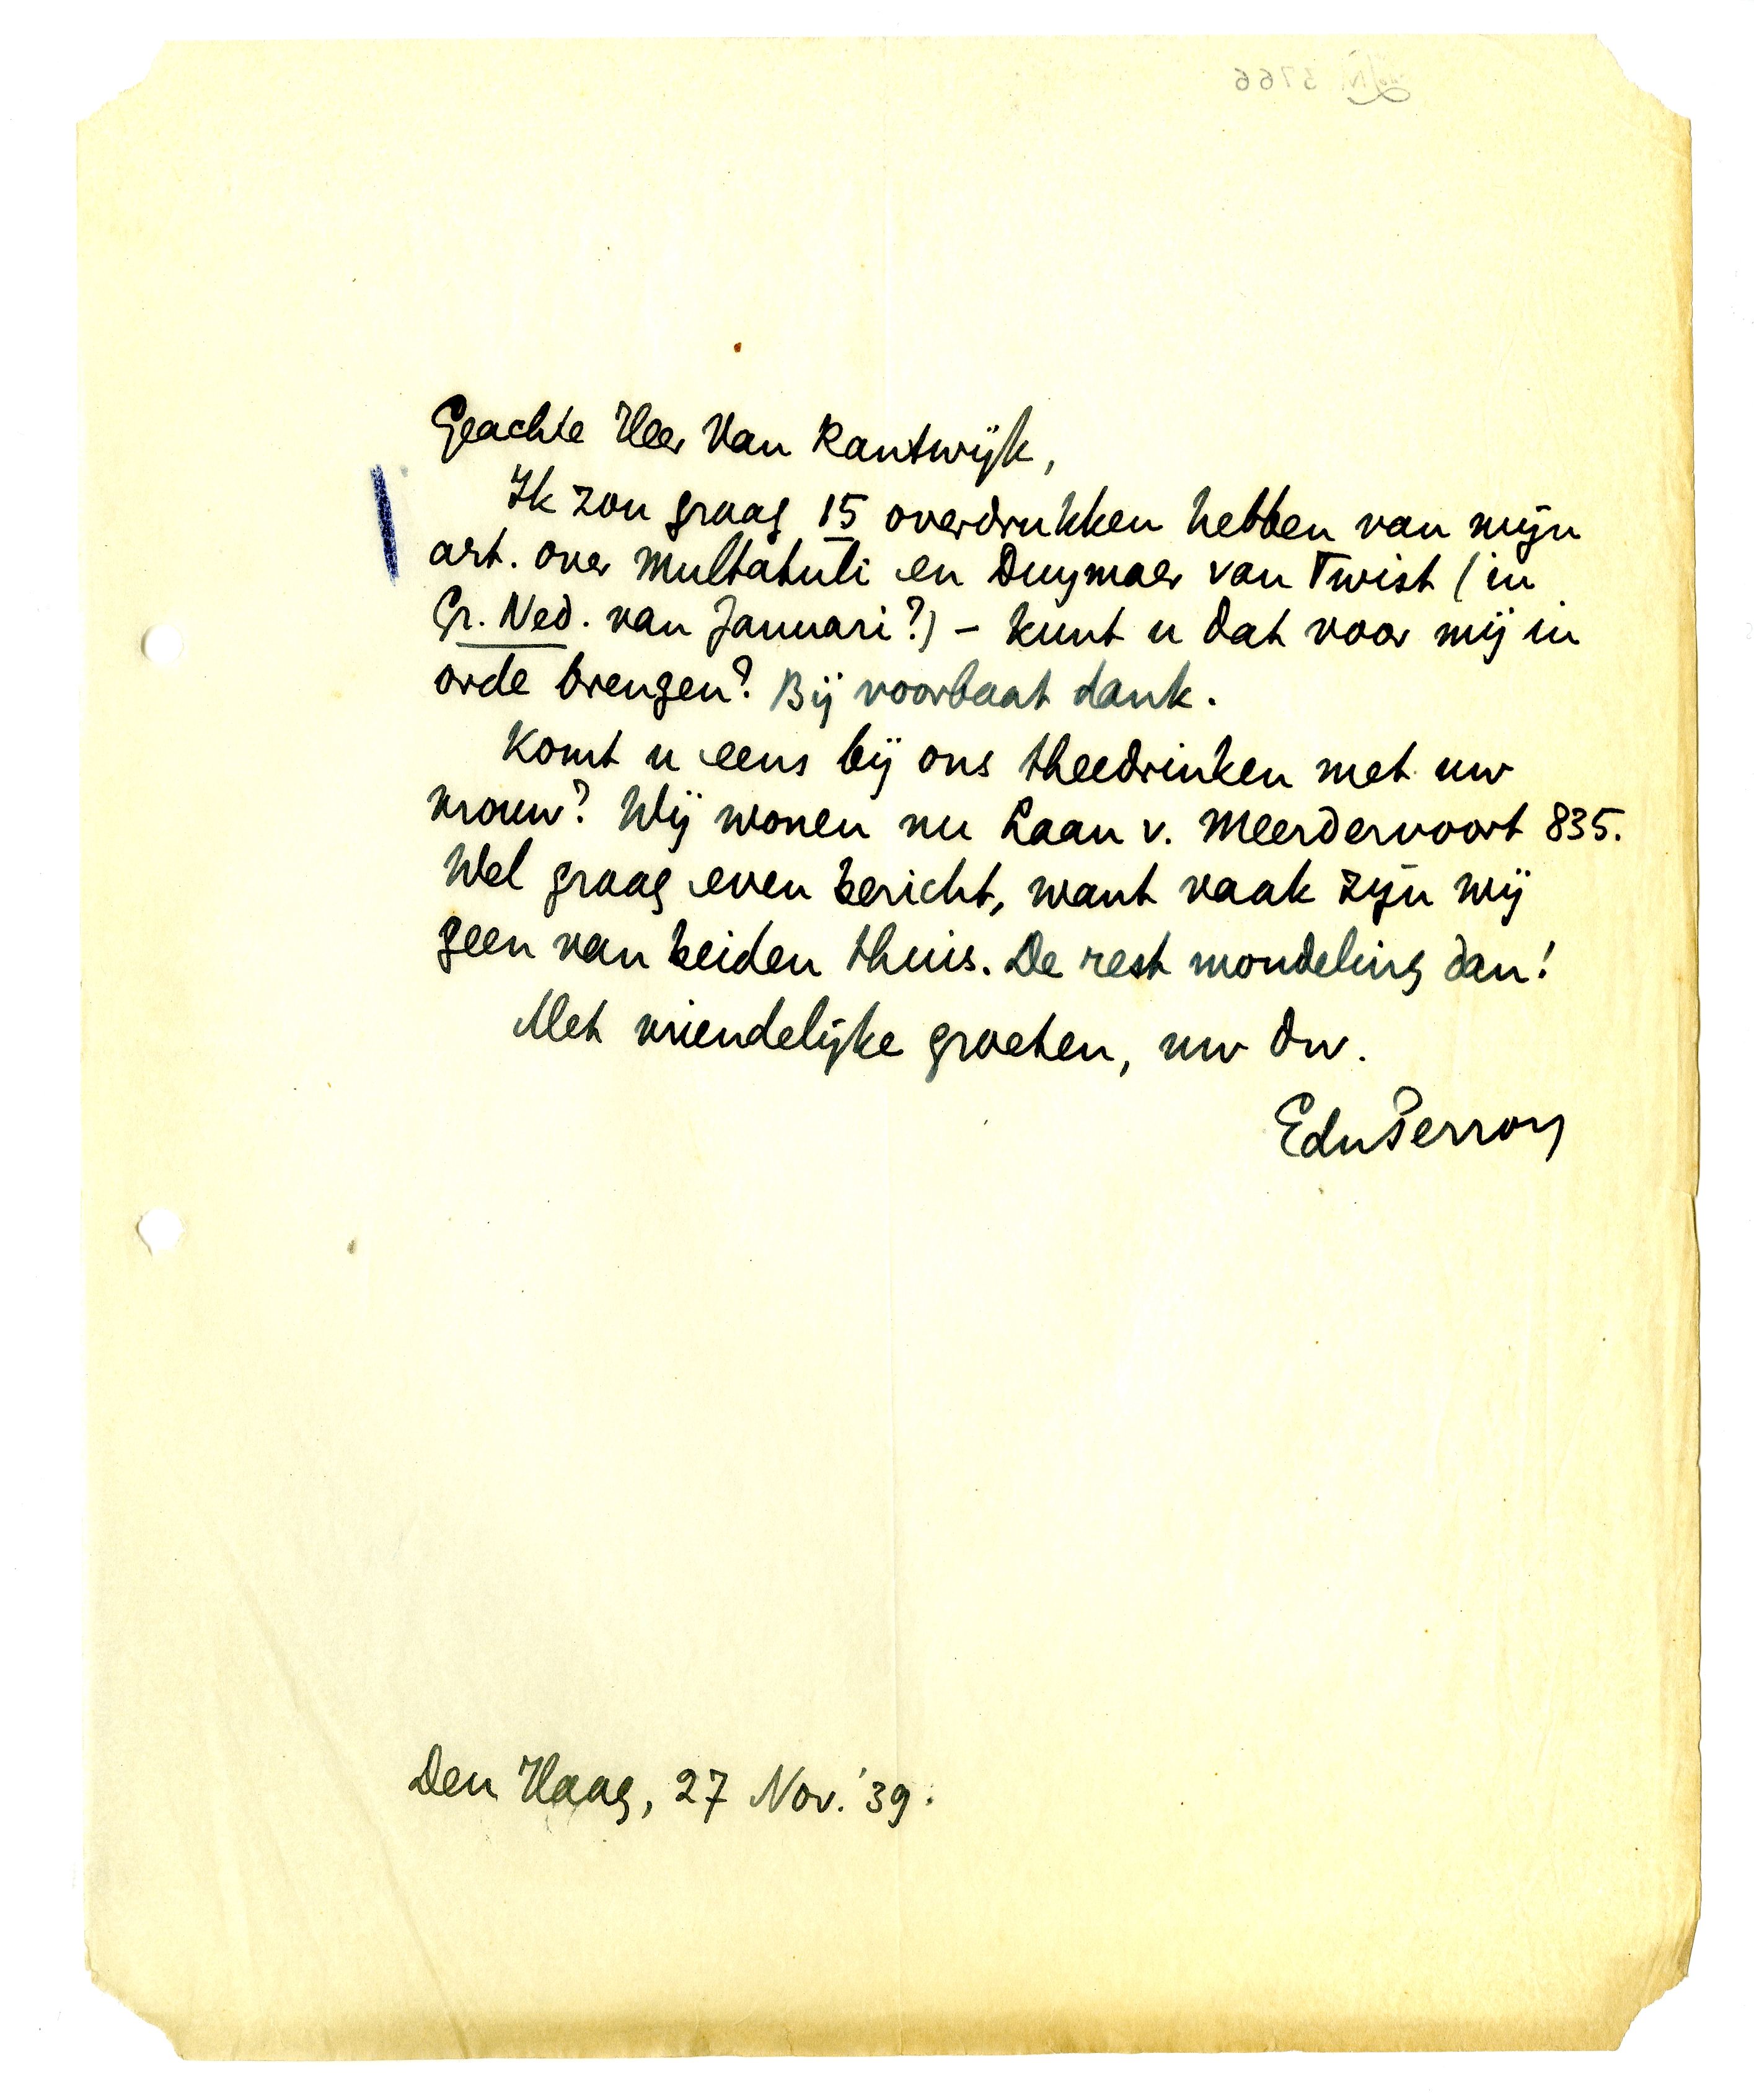 Geachte Heer Van Kantwijk,
Ik zou graag 15 overdrukken hebben van mijn
art. over Multatuli en Duymaer van Twist (in
Gr. Ned. van Januari?) – kunt u dat voor mij in
orde brengen? Bij voorbaat dank.
Komt u eens bij ons theedrinken met uw
vrouw? Wij wonen nu Laan v. Meerdervoort 835.
Wel graag even bericht, want vaak zijn wij
geen van beiden thuis. De rest mondeling dan!
Met vriendelijke groeten, uw dw.
EduPerron
Den Haag, 27 Nov. '39.